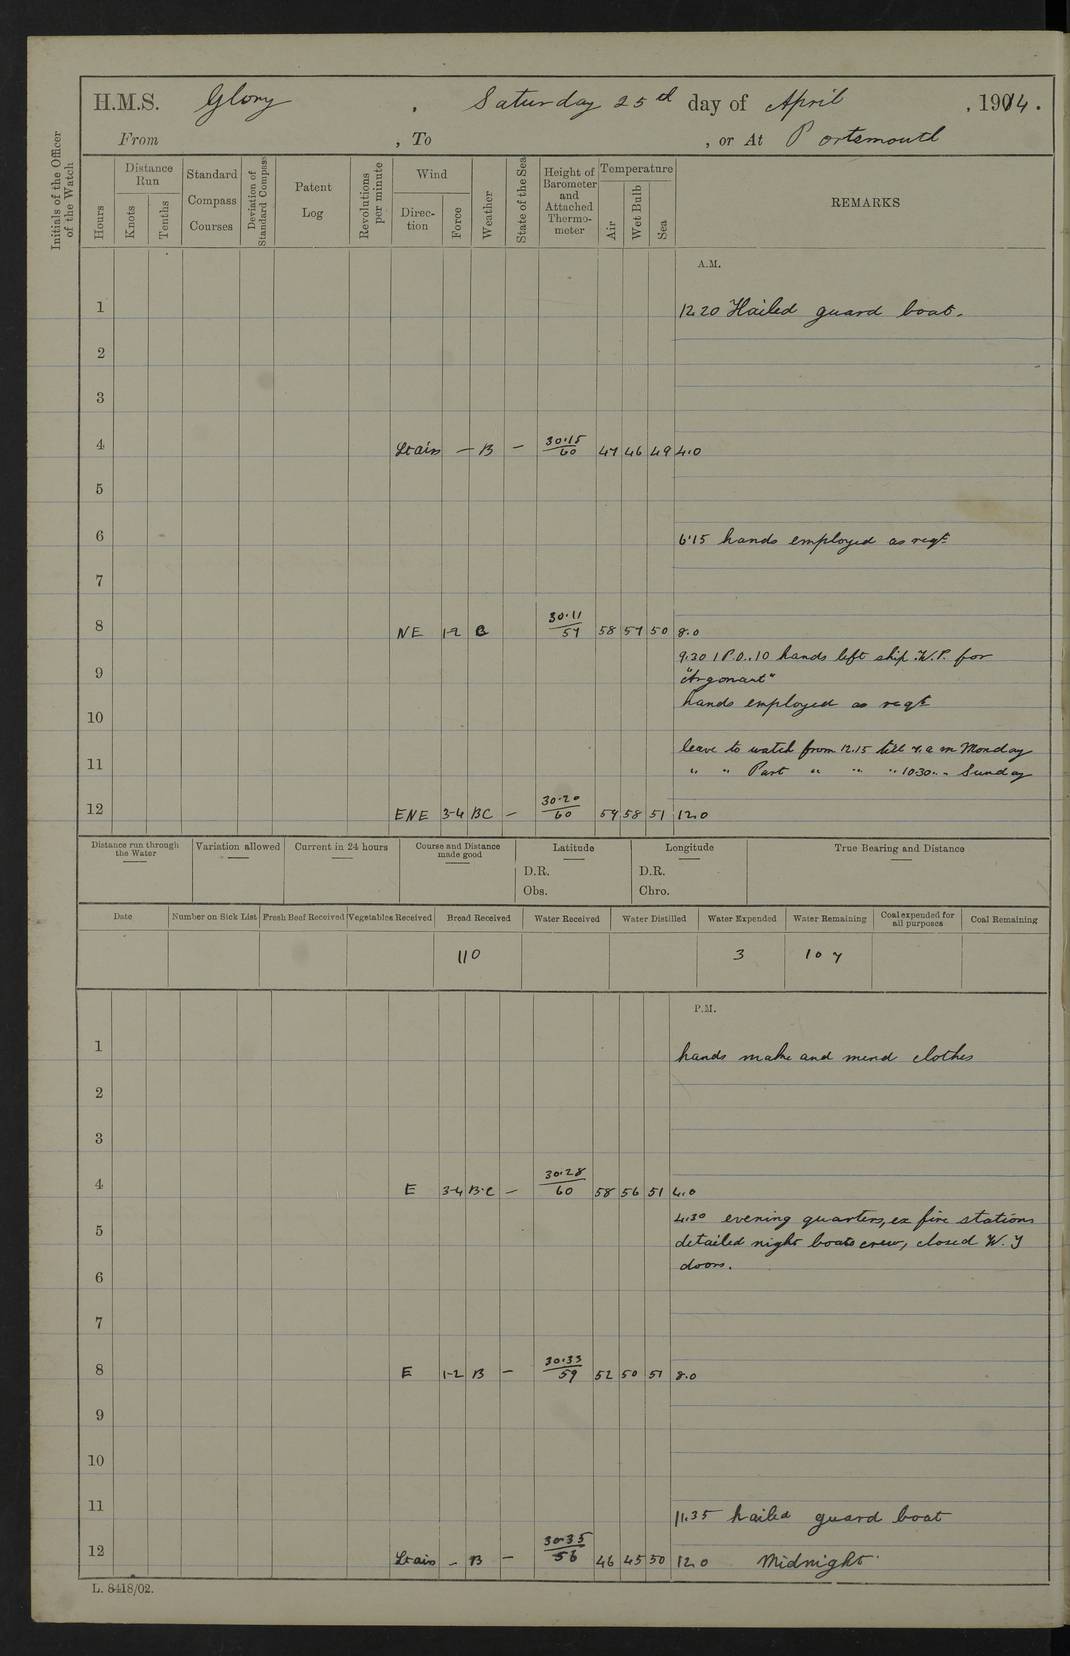 H.M.S. Glory, Saturday 25th day of April, 1914.
From , To , or At Portsmouth
Initials of the Officer of the Watch
Hours
Distance Run
Knots
Tenths
Standard Compass Courses
Deviation of Standard Compass
Patent Log
Revolutions per minute
Wind
Direction
Force
Weather
State of the Sea
Height of Barometer and Attached Thermometer
Temperature
Air
Wet Bulb
Sea
REMARKS
A.M.
1 12.20 Hailed guard boat.
2
3
4 Ltairs — B — 30.15/60 47 46 49 4.0
5
6 6.15 hands employed as reqd
7
8 NE 1-2 C 30.11/57 58 57 50 8.0
9.30 1 P.O. 10 hands left ship W.P. for
9 "Argonaut"
hands employed as reqd
10
leave to watch from 12.15 till 7. a m Monday
11 " " Part " " " 10.30 " " Sunday
12 ENE 3-4 BC — 30.20/60 59 58 51 12.0
Distance run through the Water
Variation allowed
Current in 24 hours
Course and Distance made good
Latitude
D.R.
Obs.
Longitude
D.R.
Chro.
True Bearing and Distance
Date
Number on Sick List
Fresh Beef Received
Vegetables Received
Bread Received
Water Received
Water Distilled
Water Expended
Water Remaining
Coal expended for all purposes
Coal Remaining
110 3 107
P.M.
1 hands make and mend clothes
2
3
4 E 3-4 B.C — 30.28/60 58 56 51 4.0
4.30 evening quarters, ex fire stations
5 detailed night boats crew, closed W.T
doors.
6
7
8 E 1-2 B — 30.33/59 52 50 51 8.0
9
10
11 11.35 hailed guard boat
12 Ltairs — B — 30.35/56 46 45 50 12.0 Midnight
L. 8418/02.